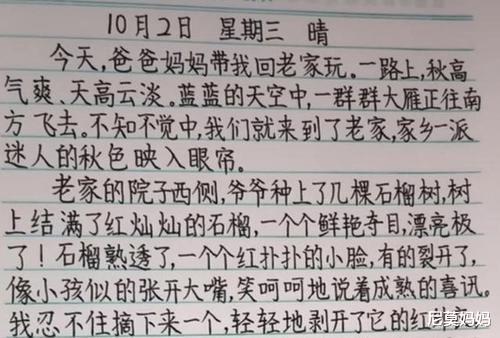 10月2日 星期三 晴
今天,爸爸妈妈带我回老家玩。一路上,秋高
气爽、天高云淡。蓝蓝的天空中,一群群大雁正往南
方飞去。不知不觉中,我们就来到了老家,家乡一派
迷人的秋色映入眼帘。
老家的院子西侧,爷爷种上了几棵石榴树,树
上结满了红灿灿的石榴,一个个鲜艳夺目,漂亮极
了!石榴熟透了,一个个红扑扑的小脸,有的裂开了,
像小孩似的张开大嘴,笑呵呵地说着成熟的喜讯。
我忍不住摘下来一个,轻轻地剥开了它的红
尼莫妈妈